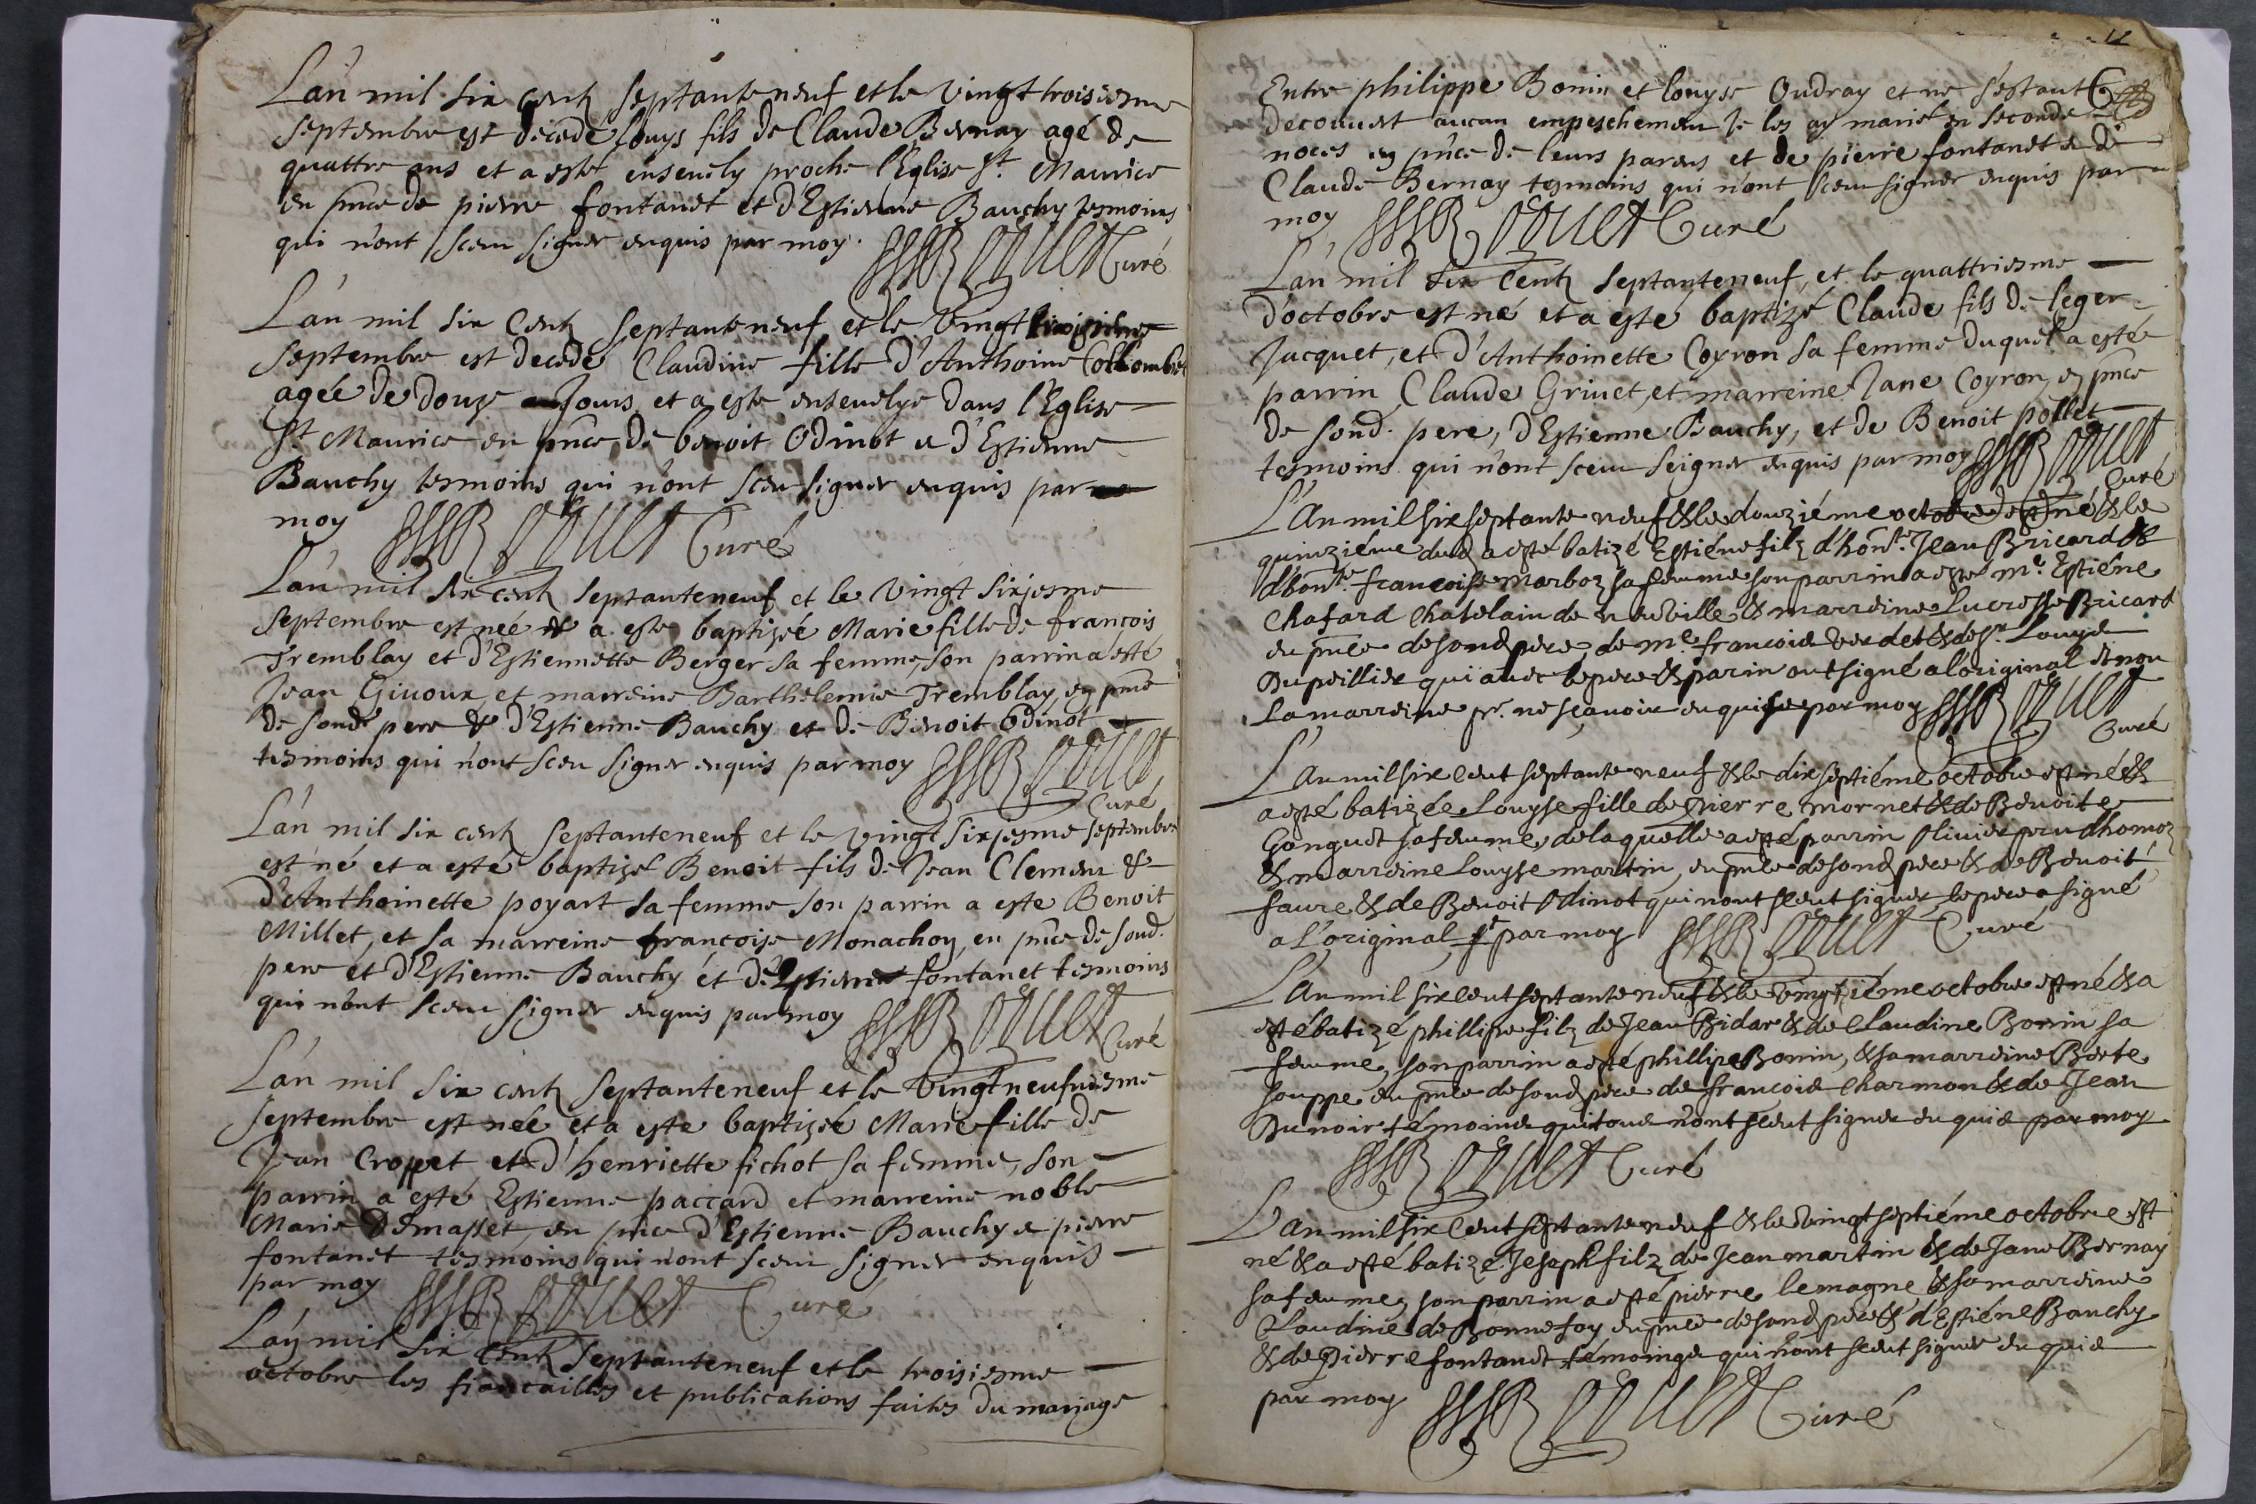 L'an mil six cent septanteneuf et le vingt troisiesme
septembre est decede Louys fils de Claude Bernay agé de
quattre ans et a esté ensevely proche l'Eglise St. Maurice
en pnce de pierre fontanet et d'Estienne Bauchy tesmoins
qui n'ont sceu signer enquis par moy.
Curé
L'an mil six cent septanteneuf et le vingt troisiesme
septembre est decede Claudine fille d'Anthoine Collombet
agée de douze jours et a este ensevelye dans l'Eglise
St Maurice en pnce de benoit Odinot et d'Estienne
Bauchy tesmoins qui n'ont sceu signer enquis par
moy Curé
L'an mil six cent septanteneuf et le vingt sixiesme
septembre est née & a este baptisée Marie fille de françois
Tremblay et d'Estiennette Berger sa femme, son parrin a esté
Jean Givoux et marreine Barthelemie Tremblay, en pnce
de sond. pere & d'Estienne Bauchy et de Benoit Odinot
tesmoins qui n'ont sceu signer enquis par moy
Curé
L'an mil six cent septanteneuf et le vingt sixiesme septembre
est né et a esté baptisé Benoit fils de Jean Clement &
d'Anthoinette poyart sa femme son parrin a este Benoit
Millet, et sa marreine françoise Monachon, en pnce de soud.
pere et d'Estienne Bauchy et de fontanet tesmoins
qui n'ont sceu signer enquis par moy
Curé
L'an mil six cent septanteneuf et le vingtneufviesme
septembre est née et a este baptisée Marie fille de
Jean Croppet et d'henriette fichot sa femme, son
parrin a esté Estienne paccard et marreine noble
Marie Demasset, en pnce d'Estienne Bauchy et pierre
fontanet tesmoins qui n'ont sceu signer enquis
par moy Curé
L'an mil six cent septanteneuf et le troisiesme
octobre les fiancailles et publications faites du mariage
Entre philippe Bonin et louyse Oudray et ne s'estant
decouvert aucun empeschement Je les ay mariés en seconde
noces en pnce de leurs parens et de pierre fontanet & de
Claude Bernay tesmoins qui n'ont sceu signer enquis par
moy Curé
L'an mil six cent septanteneuf, et le quattriesme
d'octobre est né et a esté baptizé Claude fils de leger
Jacquet, et d'Anthoinette Coyron sa femme duquel a esté
parrin Claude Grivet, et marreine Jane Coyron, en pnce
de sond. pere, d'Estienne Bauchy, et de Benoit pollet
tesmoins qui n'ont sceu seigner enquis par moy
Curé
L'An mil six septante neuf & le douziéme octobre est né & le
quinziéme dud a esté batizé Estiéne filz d'honte. Jean Bricard &
d'honte francoise marboz sa femme son parrin a esté mr. Estiéne
Chafard Chatelain de & marreine Lucresse Bricard
en pnce de sond pere, de mr. francois & de sr. Louys
Dupeillier qui avec le pere & parin ont signé a l'original & non
la marreine pr. ne sçavoir enquise par moy
Curé
L'an mil six cent septante neuf & le dix septiéme octobre est né &
a esté batizée Louyse fille de pierre mornet & de Benoite
Gonguet sa femme, de laquelle a esté parrin Olivier prudhomoz
& marreine Louyse martin, en pnce de sond pere & de Benoit
faure & de Benoit Odinot qui n'ont sceut signer le pere a signé
a L'original par moy Curé
L'An mil six cent septante neuf & le vingtiéme octobre est né & a
esté batizé phillipe filz de Jean Bidar & de Claudine Bonin sa
femme, son parrin a esté phillipe Bonin, & sa marreine Berte
souppe en pnce de sond pere de francois Charmon & de Jean
Dunoir témoins qui tous n'ont sceut signer enquis par moy
Curé
L'an mil six cent septante neuf & le vingt septiéme octobre est
né & a esté batizé Joseph filz de Jean martin & de Jane Bernay
sa femme, son parrin a esté pierre lemagne & sa marreine
Claudine de Bonnefoy en pnce de sond pere & d'Estiéne Bauchy
& de Pierre fontanet témoings qui n'ont sceut signer enquis
par moy Curé